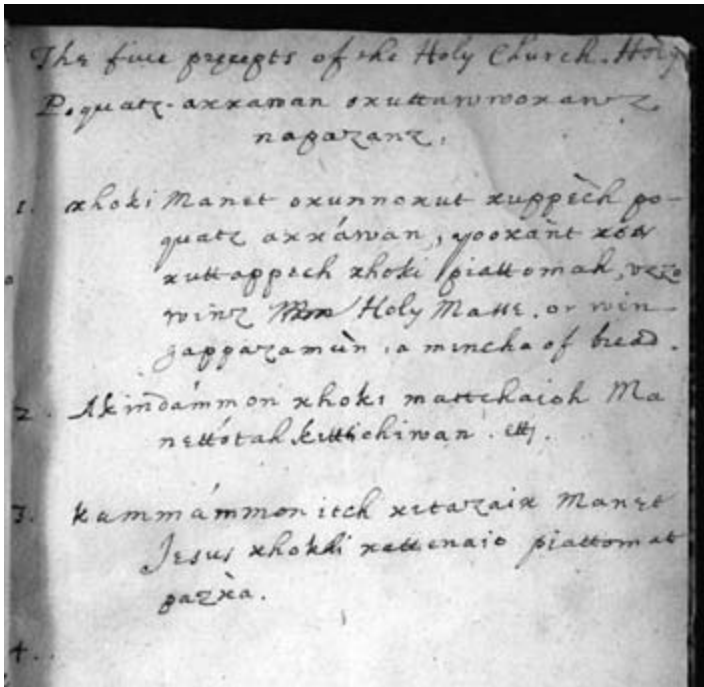 The five precepts of the Holy Church. Holy
P. quatz. axxawan oxuttawwoxawz
napazanz.
1. xhoki Manet oxunnoxut xuppèch po-
quatz axxáwan, yooxànt
xuttappech xhoki piattomah,
winz Holy Masse. or win-
zappazamùn, a mincha of bread.
2. Akindámmon xhoki mattchaioh Ma
nettótah
3. Kummámmon itch xetazaix Manet
Jesus xhokki xettenaio piattomat
pazxa.
4.